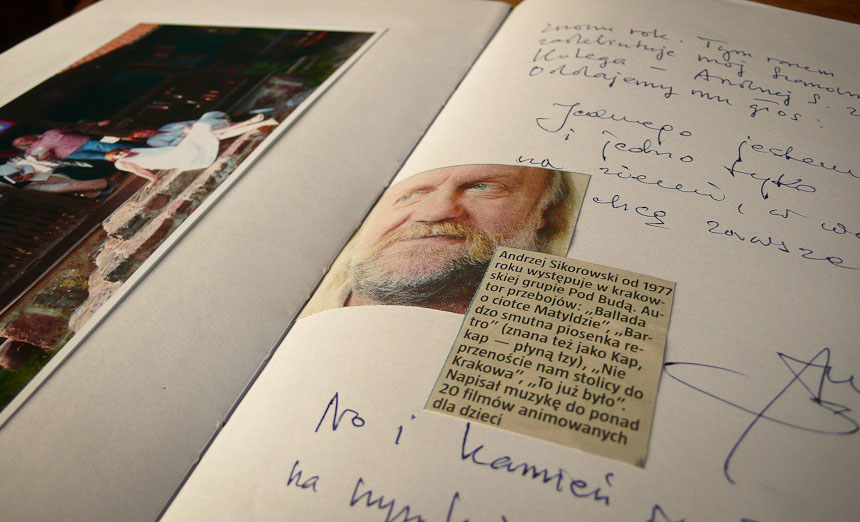 rok. Tym razem
zadebiutuje mój
Kolega – Andrzej S.
Oddajemy mu głos:
Jednego jestem
i jedno tylko
na ziemi i w
chcę zawsze
Andrzej Sikorowski od 1977
roku występuje w krakow-
skiej grupie Pod Budą. Au-
tor przebojów: „Ballada
o ciotce Matyldzie”, „Bar-
dzo smutna piosenka re-
tro” (znana też jako Kap,
kap — płyną łzy), „Nie
przenoście nam stolicy do
Krakowa”, „To już było”.
Napisał muzykę do ponad
20 filmów animowanych
dla dzieci
No i kamień
na